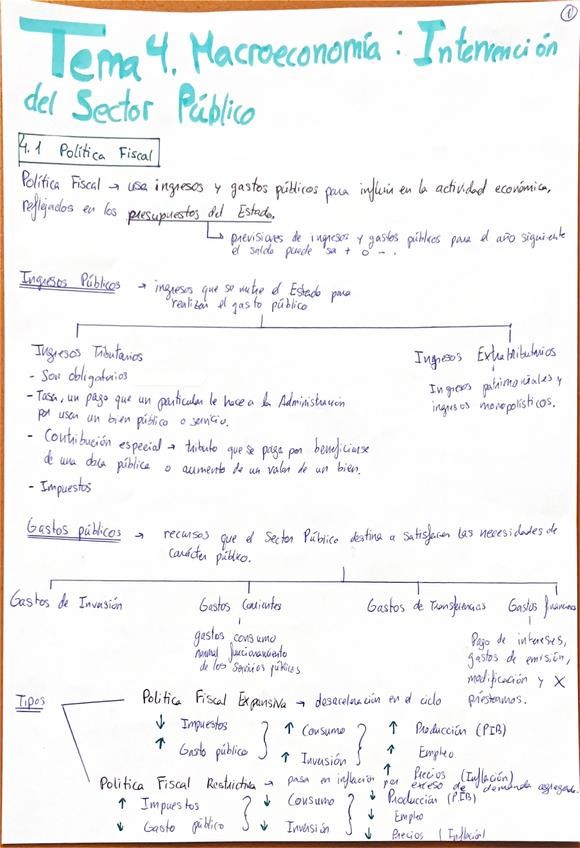 1
Tema 4. Macroeconomía : Intervención
del Sector Público
4.1 Política Fiscal
Política Fiscal → usa ingresos y gastos públicos para influir en la actividad económica,
reflejados en los presupuestos del Estado.
previsiones de ingresos y gastos públicos para el año siguiente
el saldo puede ser + o - .
Ingresos Públicos → ingresos que se nutre el Estado para
realizar el gasto público
Ingresos Tributarios
- Son obligatorios
- Tasa, un pago que un particular le hace a la Administración
por usar un bien público o servicio.
- Contribución especial → tributo que se paga por beneficiarse
de una obra pública o aumento de un valor de un bien.
- Impuestos
Ingresos Extratributarios
Ingresos patrimoniales y
ingresos monopolísticos.
Gastos públicos → recursos que el Sector Público destina a satisfacer las necesidades de
carácter público.
Gastos de Inversión
Gastos Corrientes
gastos consumo
normal funcionamiento
de los servicios públicos
Gastos de Transferencias
Gastos financieros
Pago de intereses,
gastos de emisión,
modificación y X
préstamos.
Tipos
Política Fiscal Expansiva → desaceleración en el ciclo
↓ Impuestos
↑ Gasto público
↑ Consumo
↑ Inversión
↑ Producción (PIB)
↑ Empleo
↑ Precios (Inflación)
Política Fiscal Restrictiva → pasa en inflación por exceso de demanda agregada.
↑ Impuestos
↓ Gasto público
↓ Consumo
↓ Inversión
↓ Producción (PIB)
↓ Empleo
↓ Precios (Inflación)